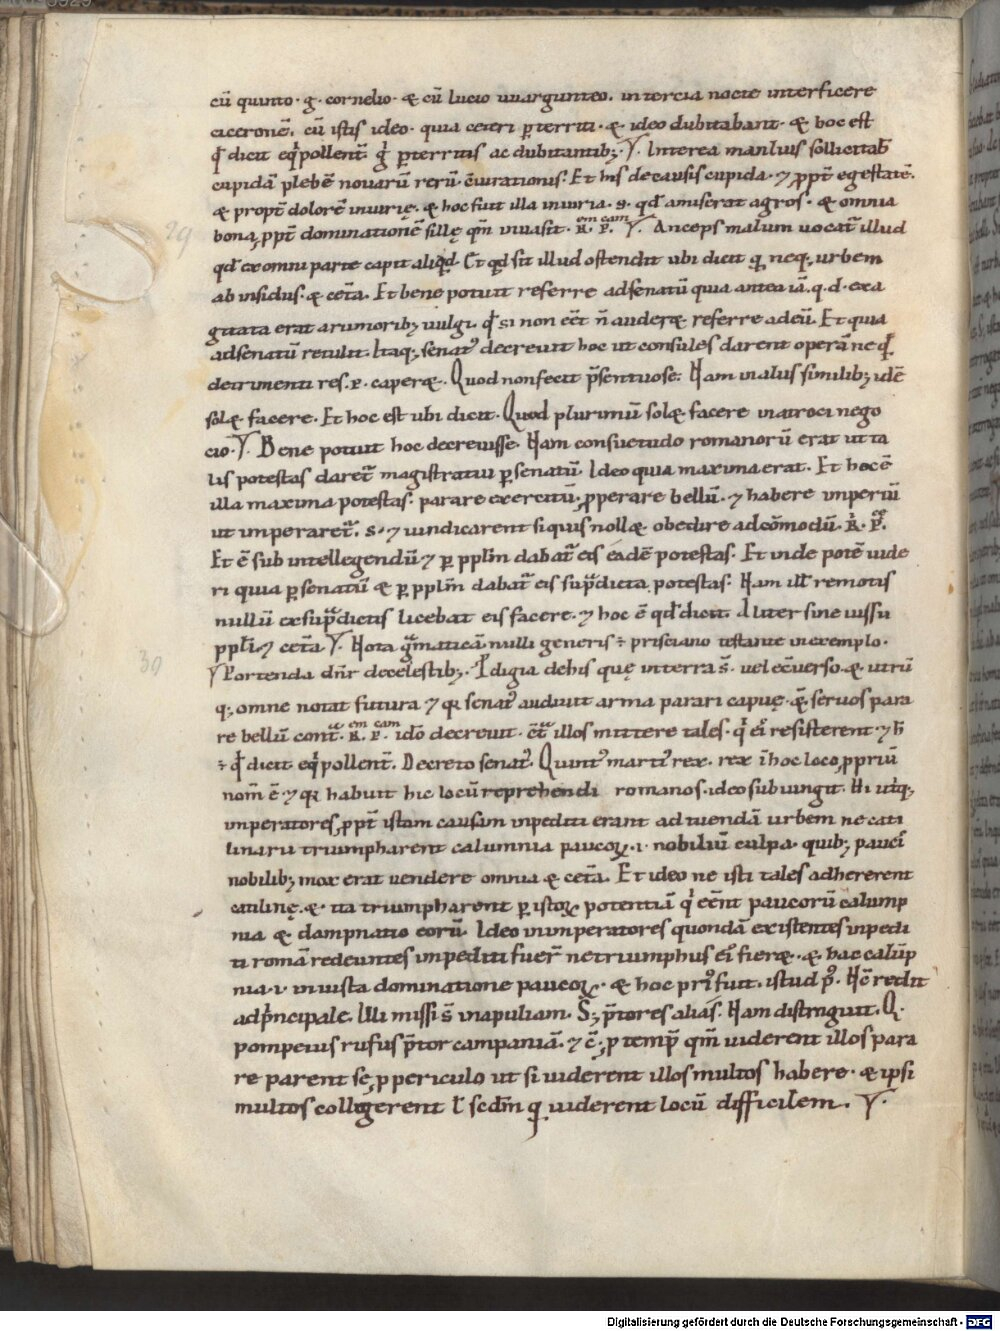 cū quinto· g· cornelio· & cū lucio uuargunteo. in tercia nocte interficere
ciceronē. cū istis ideo· quia ceteri pterriti· &· ideo dubitabant· & hoc est
qđ dicit eqͥpollent̄ gͥ pterritis ac dubitantibꝫ· Ɣ. Interea manlius sollicitab̄
cupidā plebē nouarū rerū· Et his de causis cupida· ⁊ ꝓpt̄ egestatē.
& propt̄ dolorē iniurię· & hoc fuit illa iniuria· s· qđ amiserat agros· & omnia
bona, ꝓpt̄ dominationē sillę qm̄ inuasit· R̄. P̄. Ɣ. Anceps malum uocat᷑ illud
qđ ex omni parte capit aliqđ. Et qđ sit illud ostendit ubi dicit qͥ neqꝫ urbem
ab insidiis· & cet̄a. Et bene potuit referre ad senatū quia antea iā. q. d. exa
gitata erat a rumoribꝫ uulgi. qđ si non eēt n̄ auder& referre ad eū. Et quia
ad senatū retulit. Itaqꝫ senat᷒ decreuit hoc ut consules darent operā ne qđ
detrimenti res. p. caper&. Quod non fecit p̄sentuose. Nam in alius similibꝫ idē
sol& facere. Et hoc est ubi dicit. Quod plurimū sol& facere in atroci nego
cio· Ɣ. Bene potuit hoc decreuisse. Nam consuetudo romanorū erat ut ta
lis potestas daret᷑ magistratui ꝑ senatū. Ideo quia maxima erat. Et hoc ē
illa maxima potestas. parare exercitū, ꝓperare bellū. ⁊ habere imperiū
ut imperaret᷑. s· ⁊ uindicarent si quis noll& obedire ad cōmodū. R̄. P̄.
Et ē sub intellegendū ⁊ ꝑ pplm̄ dabat᷑ eis eadē potestas. Et inde potē uide
ri quia ꝑ senatū & ꝑ pplm̄ dabat᷑ eis sup̄dicta potestas. Nam ill̄ remotis
nullū ex sup̄dictis licebat eis facere. ⁊ hoc ē qđ dicit. Aliter sine iussu
ppl̄i ⁊ cet̄a Ɣ. Nota gͣmaticā nulli generis ÷ prisciano testante in exemplo.
Ɣ Portenda dn̄r de celestibꝫ. Pͦdigia de his quę in terra s̄. uel ec̄uerso & utrū
qꝫ omne notat futura ⁊ qͣ senat᷒ audiuit arma parari capuę· & seruos para
re bellū cont̄ R̄. P̄. idō decreuit. illos mittere tales· qͥ eī resisterent· ⁊ h̄
÷ qđ dicit eqͥpollent̄. Decreto senat᷒. Quint᷒ marti᷒ rex. rex ī hoc loco ꝓpriū
nom̄ ē· ⁊ qͣ habuit hic locū reprehendi romanos. ideo subiungit. Hi utͥqꝫ
imperatores, ꝓpt̄ istam causam inpediti erant ad uendā urbem ne cati
linarii triumpharent calumnia paucoꝝ· i· nobiliū culpa· quibꝫ pauci
nobilibꝫ mox erat uendere omnia & cet̄a. Et ideo ne isti tales adhererent
catilinę· & ita triumpharent ꝑ istoꝝ potentiā qͥ eēnt paucorū calump
nia & dampnatio eorū. Ideo in imperatores quondā existentes inpedi
ti romā redeuntes impediti fuer̄ ne triumphus eī fier&· & hac calūp
nia· i· iniusta dominatione paucoꝝ. & hoc pri᷒ fuit. istud p᷒. Nc̄ redit
ad pͥncipale. Illi missi s̄ in apuliam. Sꝫ p̄tores alias. Nam distinguit. Q.
pompeius rufus p̄tor campaniā. ⁊ c̄·, ꝑ temp᷒ qm̄ uiderent illos para
re parent se, ꝓ periculo ut si uiderent illos multos habere· & ipsi
multos colligerent l̄ scdm̄ qͥ uiderent locū difficilem. Ɣ.
29
30
Digitalisierung gefördert durch die Deutsche Forschungsgemeinschaft - DFG